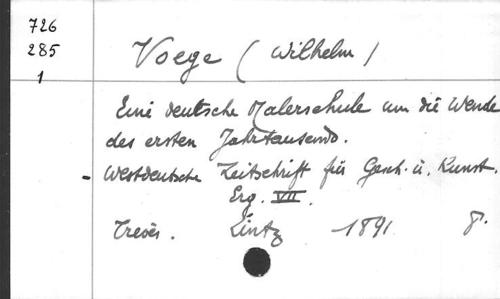 726
285
1
Voege (Wilhelm)
Eine deutsche Malerschule um die Wende
des ersten Jahrtausends.
- Westdeutsche Zeitschrift für Gesch. u. Kunst.
Erg. VII.
Treves. Lintz 1891 8°.